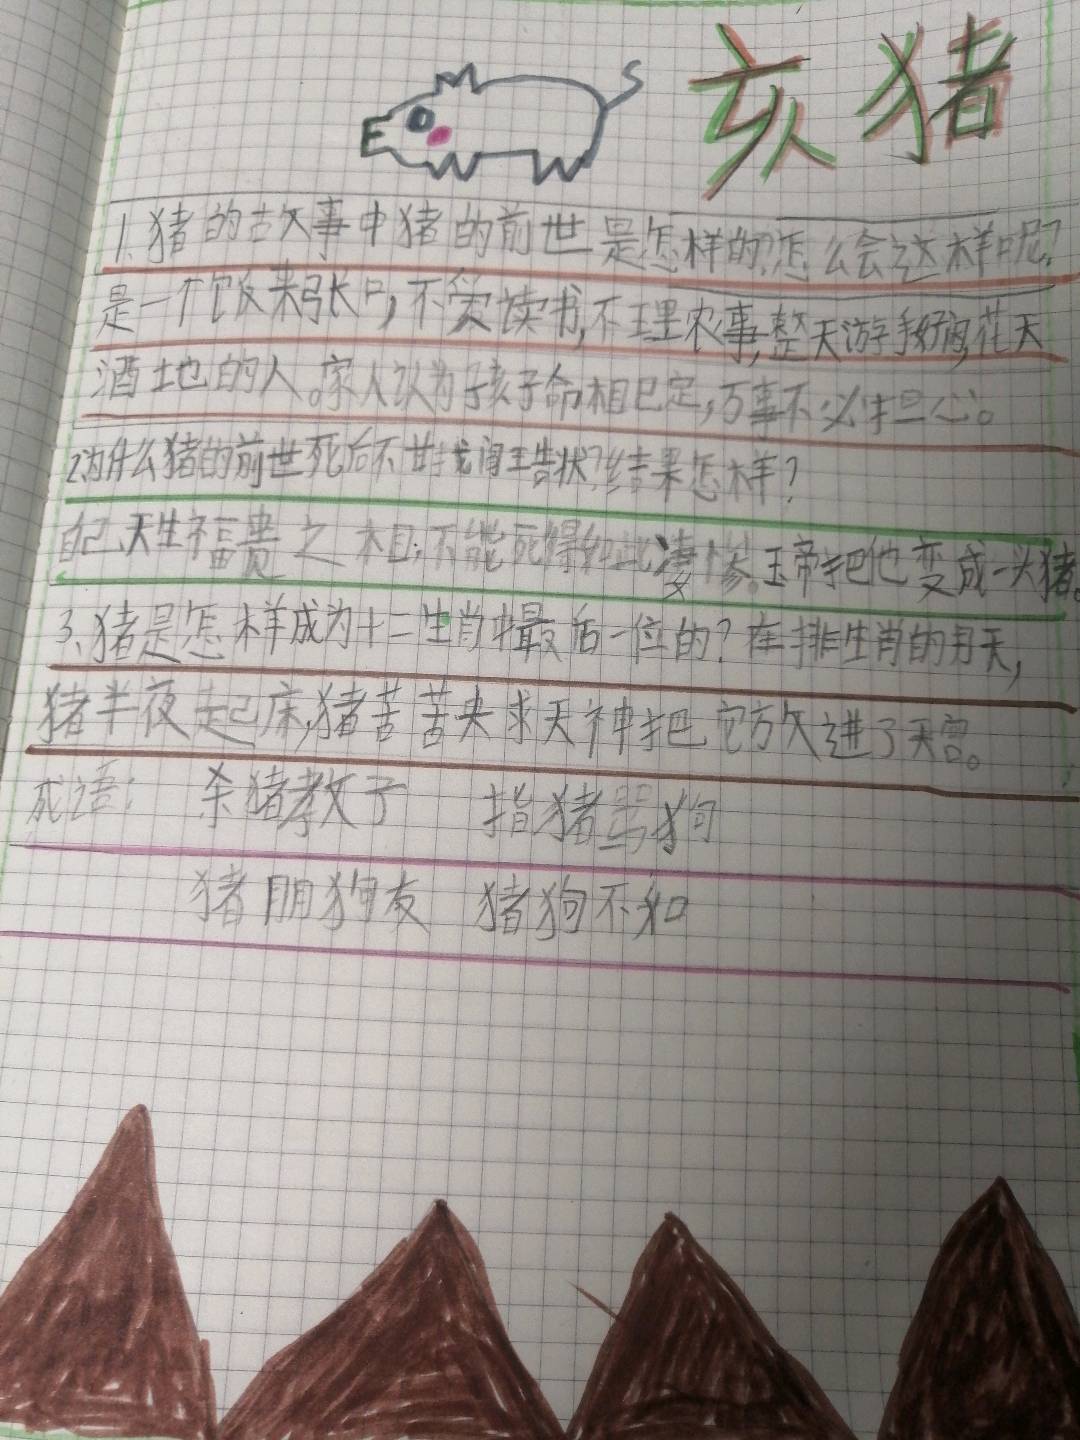 亥猪
1.猪的故事中猪的前世是怎样的?怎么会这样呢?
是一个饭来张口,不爱读书,不理农事,整天游手好闲,花天
酒地的人。家人以为孩子命相已定,万事不必担心。
2.为什么猪的前世死后不世找阎王告状?结果怎样?
自己天生福贵之相,不能死得如此凄惨。玉帝把他变成一头猪。
3.猪是怎样成为十二生肖中最后一位的?在排生肖的那天,
猪半夜起床,猪苦苦央求天神把它放进了天宫。
成语: 杀猪教子 指猪骂狗
猪朋狗友 猪狗不如